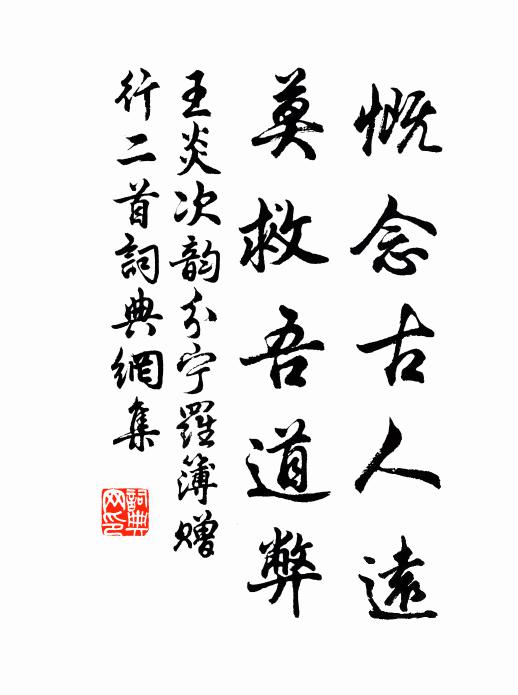 慨念古人遠
莫救吾道弊
王炎次韵分宁羅簿赠
行二首詞典網集
詞典
网印